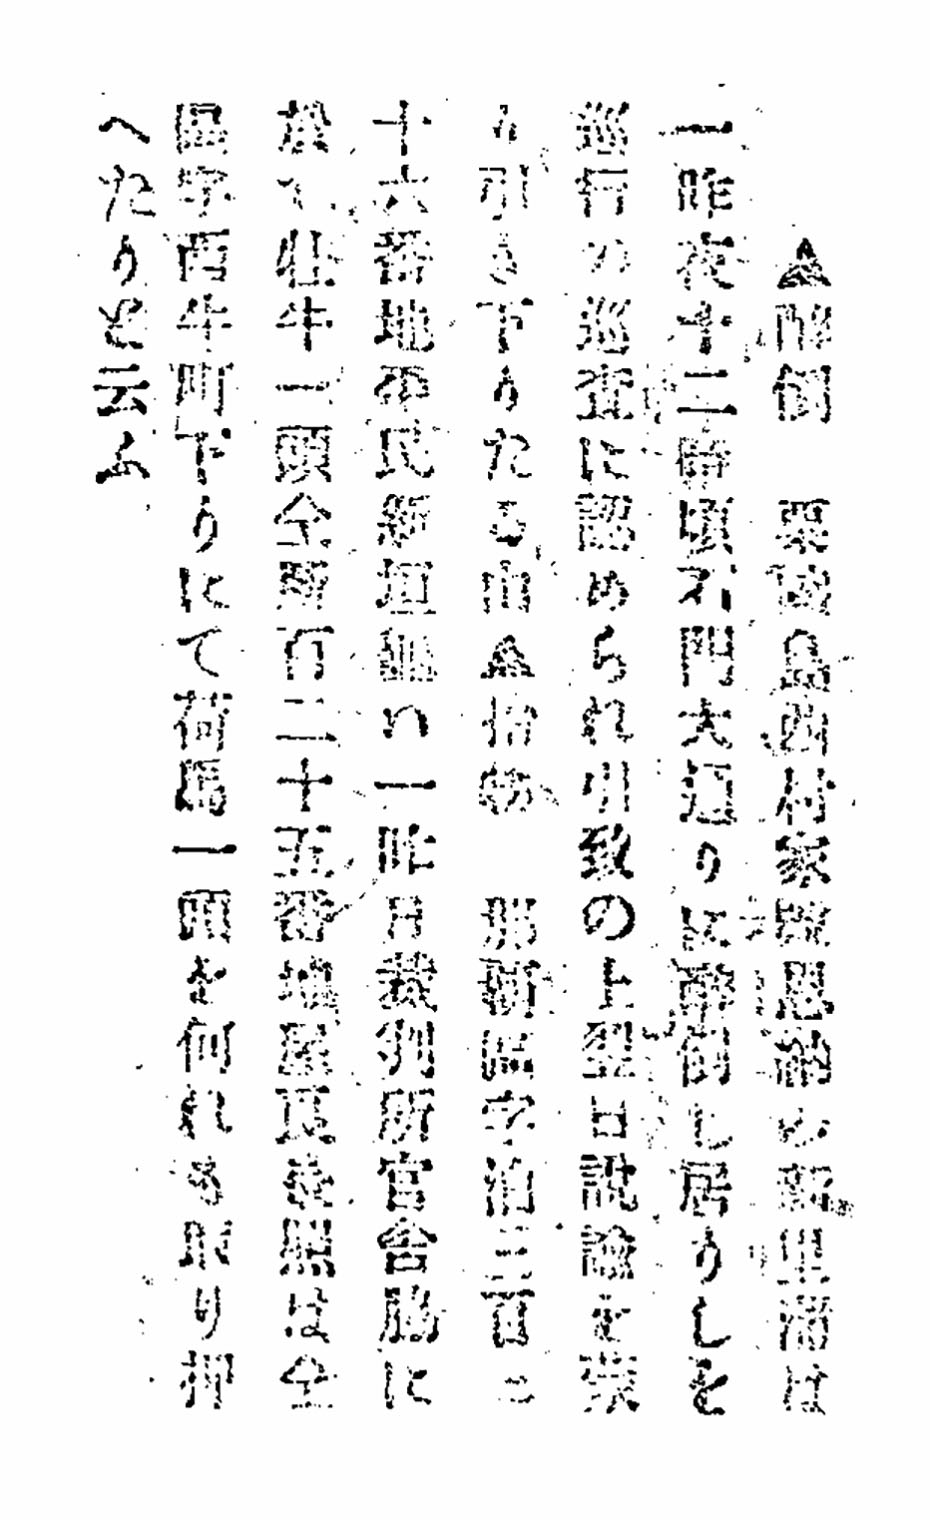 ▲醉倒 粟國島西村家 の 里 は
一昨夜十二時頃石門大道りに醉倒し居りしを
巡行の巡査に認められ引致の上翌日説諭を張
り引き下りたる由▲拾物 那覇區字泊三百二
十六番地平民新垣 の一昨日裁判所官舎脇に
於て牡牛一頭仝所百二十五番地 民 は仝
區字西牛町下りにて荷馬一頭を何れも取り押
へたりと云ふ